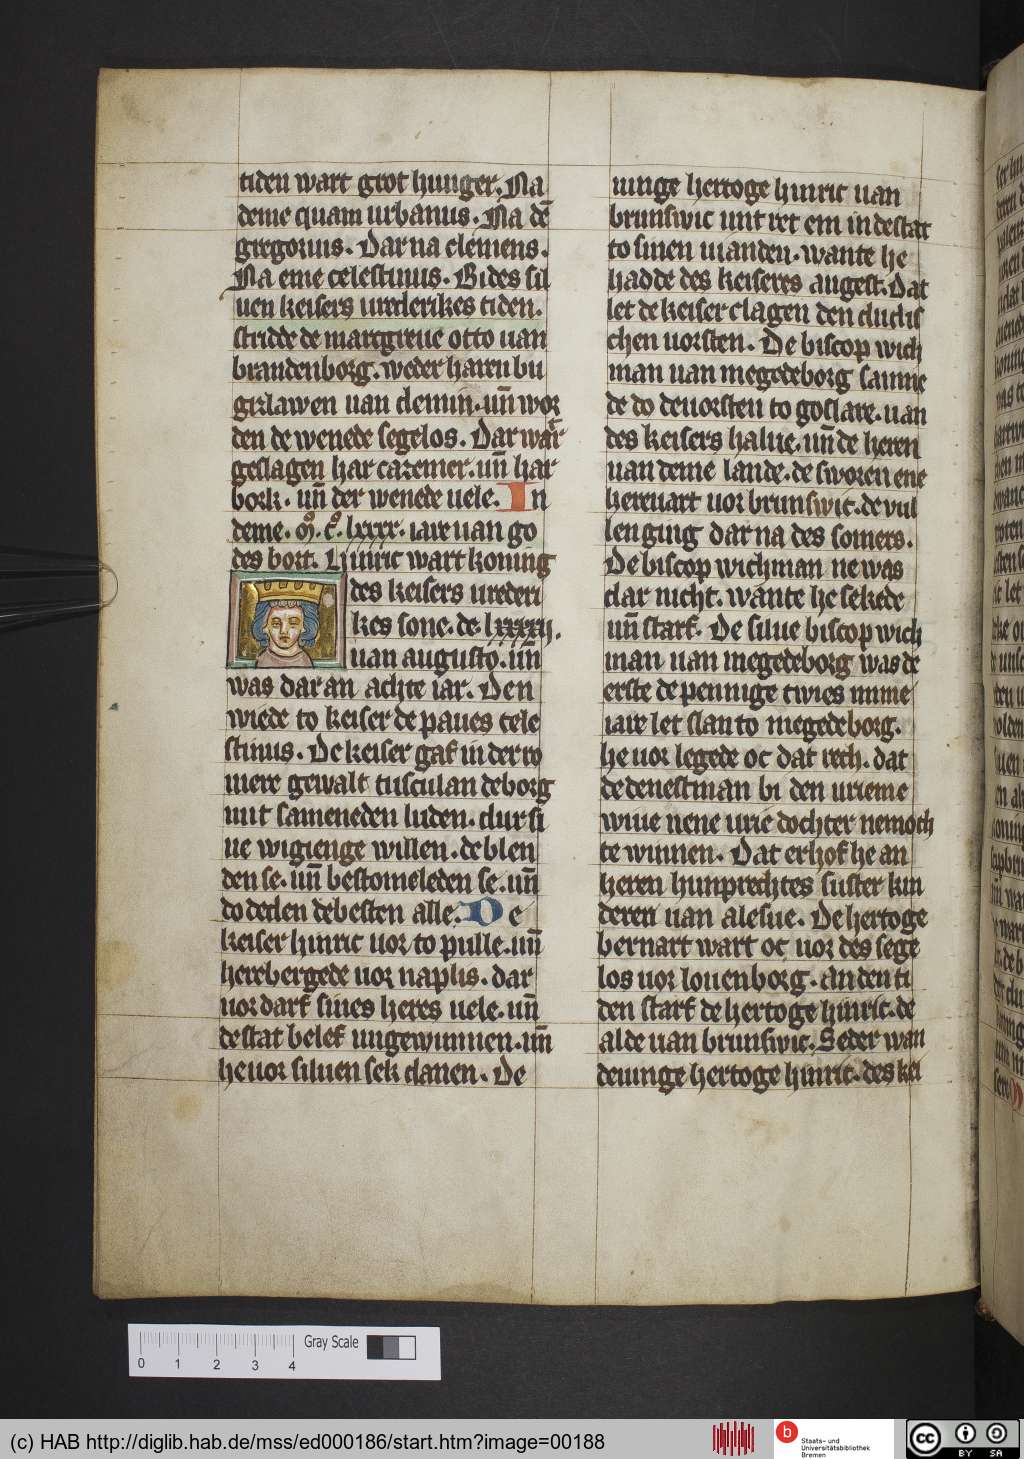 tiden wart grot hunger. Na
deme quam urbanus. Na dē
gregorius. Dar na clemens.
Na eme celestinus. Bi des sil
uen keisers urederikes tiden.
stridde de marcgreue otto uan
brandenborg. weder haren bu
gizlawen uan demin. un̄ wor
den de wenede segelos. Dar wař
geslagen har cazemer. un̄ har
bork. un̄ der wenede uele. In
deme. m̊. c̊. lxxxx. iare uan go
des bort. Hinric wart koning
des keisers urederi
kes sone. de. lxxxxij.
uan augusto. un̄
was dar an achte iar. Den
wiede to keiser de paues cele
stinus. De keiser gaf in der ro
mere gewalt tusculan de borg
mit sameneden luden. dur si
ne wigienge willen. de blen
den se. un̄ bestomeleden se. un̄
do deden de besten alle. De
keiser hinric uor to pulle. un̄
herebergede uor naplis. dar
uor darf sines heres uele. un̄
de stat belef ungewunnen. un̄
he uor siluen sek danen. De
iunge hertoge hinric uan
brunswic unt ret em in de stat
to sinen uianden. wante he
hadde des keiseres angest. Dat
let de keiser clagen den dudis
chen uorsten. De biscop wich
man uan megedeborg samne
de do de uorsten to goslare. uan
des keisers halue. un̄ de heren
uan deme lande. de sworen ene
hereuart uor brunswic. de vul
lenging dar na des somers.
De biscop wichman ne was
dar nicht. wante he sekede
un̄ starf. De silue biscop wich
man uan megedeborg was de
erste de pennige twies inme
iare let slan to megedeborg.
he uor legede oc dat rech. dat
de denestman bi den urieme
wiue nene urie dochter ne moch
te winnen. Dat erhof he an
heren hunprechtes suster kin
deren uan alesue. De hertoge
bernart wart oc uor des sege
los uor louenborg. an den ti
den starf de hertoge hinric. de
alde uan brunswic. Seder wan
de iunge hertoge hinric. des kei
Gray Scale
0 1 2 3 4
(c) HAB http://diglib.hab.de/mss/ed000186/start.htm?image=00188
b
Staats- und
Universitätsbibliothek
Bremen
cc
BY SA